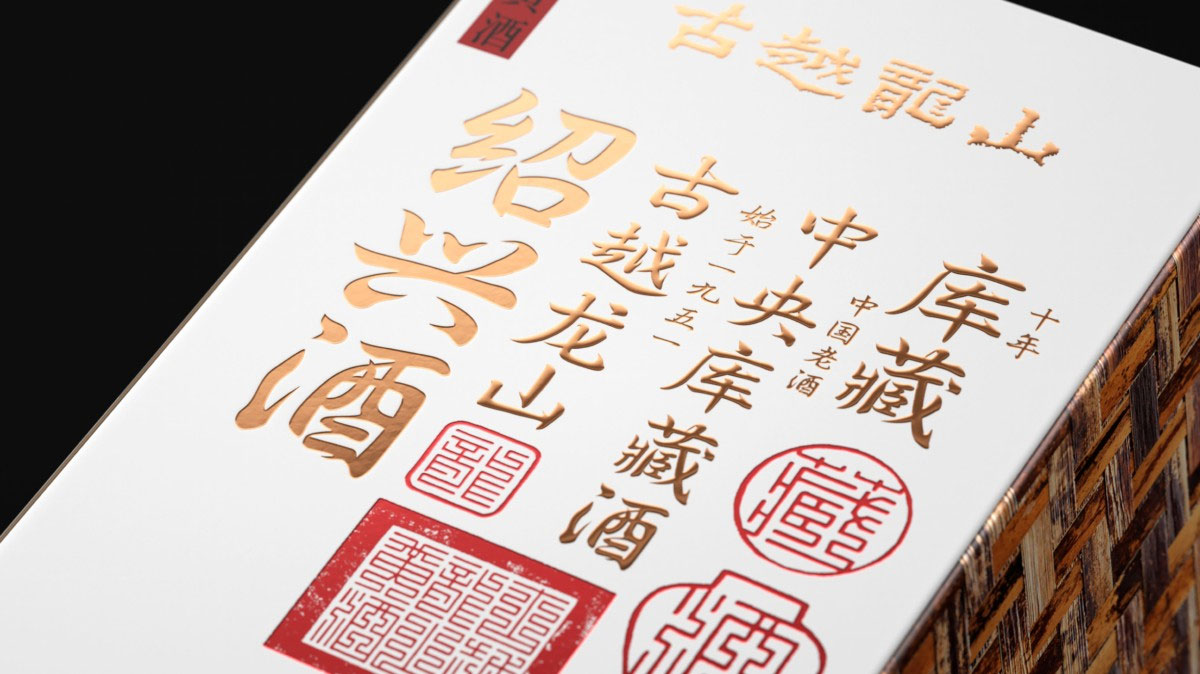 酒
古越龍山
十年
库藏
中国老酒
中央库藏酒
始于一九五一
古越龙山
绍兴酒
龍
藏
酒